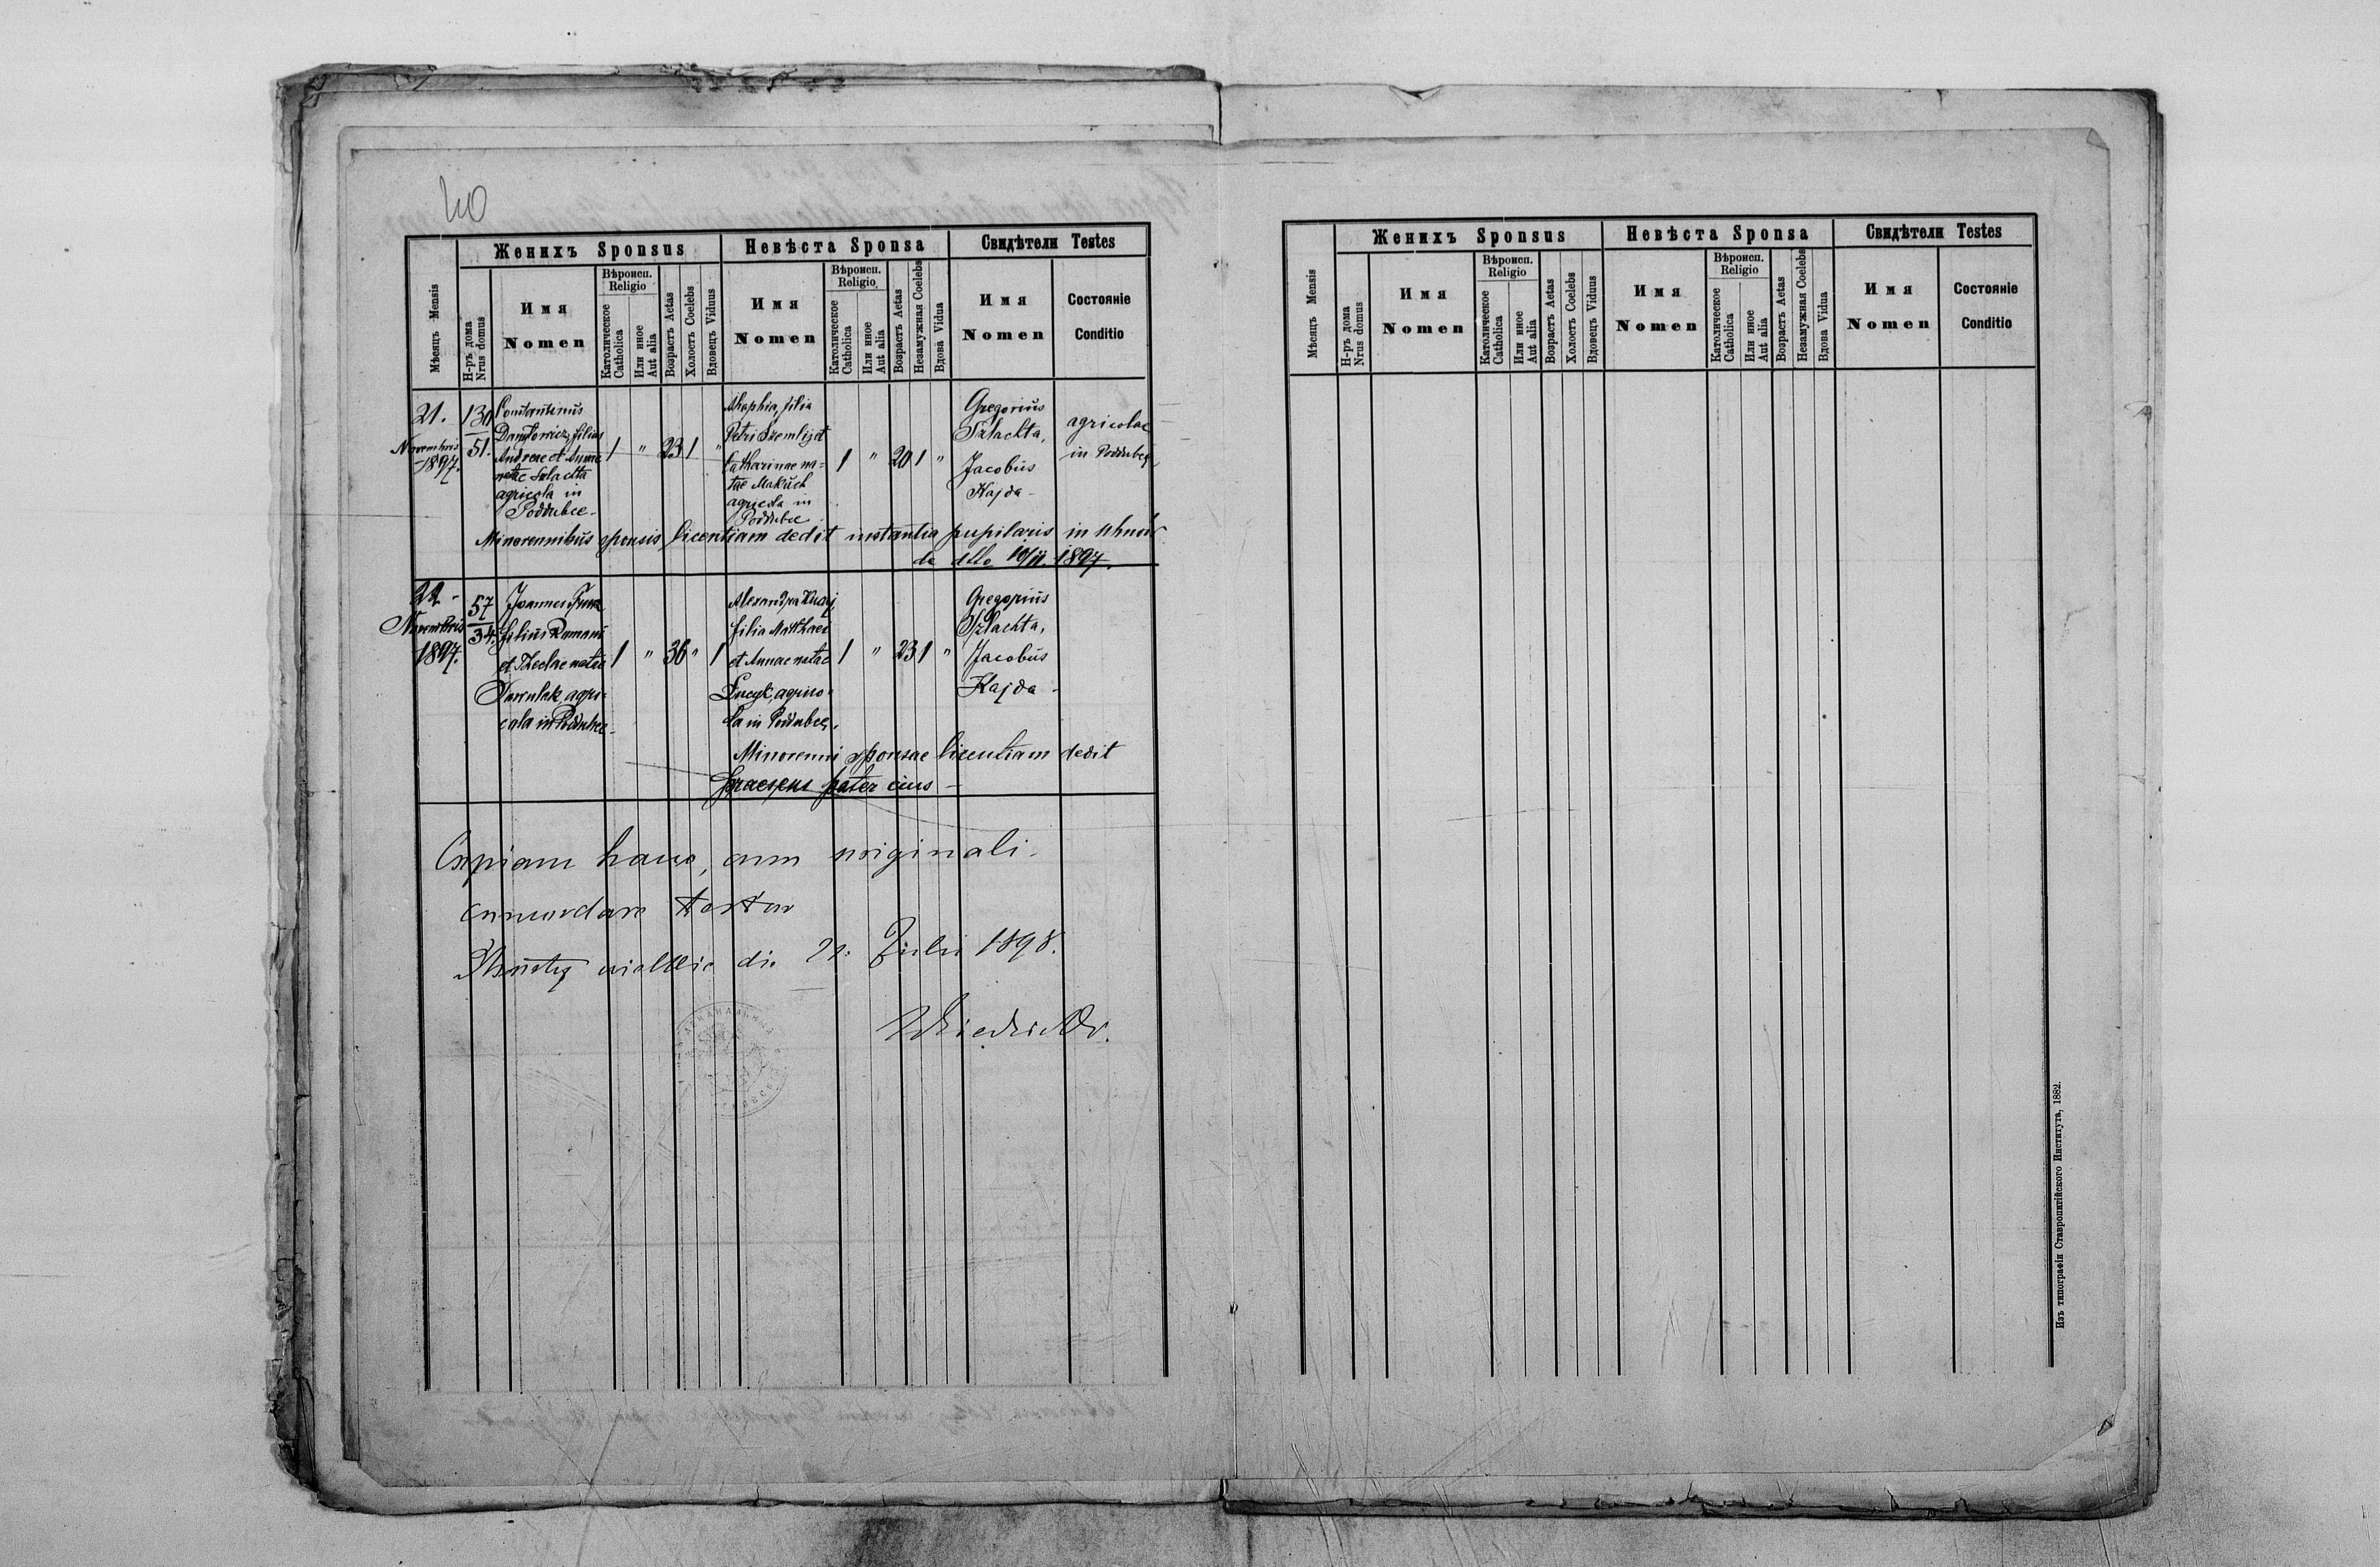 40
Женихъ Sponsus
Невѣста Sponsa
Свидѣтели Testes
Мѣсяцъ Mensis
Н-ръ дома
Nrus domus
Имя
Nomen
Вѣроисп.
Religio
Католическое
Catholica
Или иное
Aut alia
Возрастъ Aetas
Холостъ Coelebs
Вдовецъ Viduus
Имя
Nomen
Вѣроисп.
Religio
Католическое
Catholica
Или иное
Aut alia
Возрастъ Aetas
Незамужная Coelebs
Вдова Vidua
Имя
Nomen
Состояніе
Conditio
21.
Novembris
1897.
130
51.
Constantinus
filius
Andreae et Annae
natae Szlachta
agricola in
Poddubce -
1 " 23 1 "
filia
Petri Szemlij et
Catharinae na=
tae Makuch
agricola in
Poddubce
1 " 20 1 "
Gregorius
Szlachta,
Jacobus
Kajda -
agricolae
in Poddubce
Minorennibus sponsis licentiam dedit instantia pupilaris in
de dtto 10/11. 1897.
22 -
Novembris
1897.
57
34.
Joannes
filius Romani
et Theclae natae
agri=
cola in Poddubce -
1 " 36 " 1
Alexandra
filia Matthaei
et Annae natae
agrico=
la in Poddubce,
1 " 23 1 "
Gregorius
Szlachta,
Jacobus
Kajda -
Minorenni sponsae licentiam dedit
praesens pater eius -
Copiam hanc, cum originali
concordare testor
die 21. Julii 1898.
Женихъ Sponsus
Невѣста Sponsa
Свидѣтели Testes
Мѣсяцъ Mensis
Н-ръ дома
Nrus domus
Имя
Nomen
Вѣроисп.
Religio
Католическое
Catholica
Или иное
Aut alia
Возрастъ Aetas
Холостъ Coelebs
Вдовецъ Viduus
Имя
Nomen
Вѣроисп.
Religio
Католическое
Catholica
Или иное
Aut alia
Возрастъ Aetas
Незамужная Coelebs
Вдова Vidua
Имя
Nomen
Состояніе
Conditio
Изъ типографіи Ставропигійского Института, 1882.